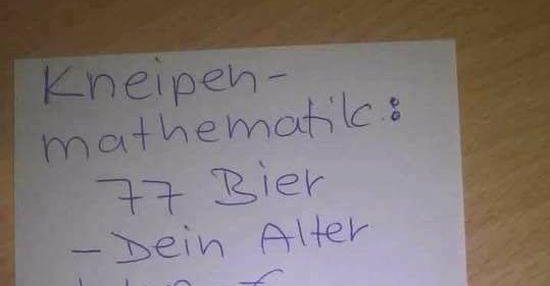 Kneipen-
mathematik:
77 Bier
- Dein Alter